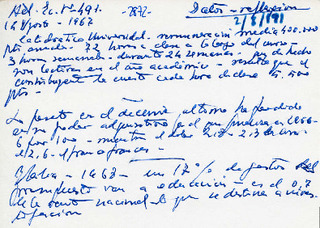 Act. Ec. Nº 491. -2872- Datos - reflexion
1 de Agosto - 1967 2/8/81
Catedratico Universidad. remuneración media 400.000
pts anuales. 72 horas a clase a lo largo del curso -
3 horas semanales - durante 24 semanas. de hecho
son lectivas en el año académico - resulta que el
contribuyente le cuesta cada hora de clase 5.500
pts -
La peseta en el decenio último ha perdido
en su poder adquisitivo
6 por 100 - mientras el dolar 2,3
el 2,6 - el franco frances -
Italia - 1963 - un 17% de gastos del
presupuesto van a educación es el 0,7
de la renta nacional lo que se destina a inves-
tigacion